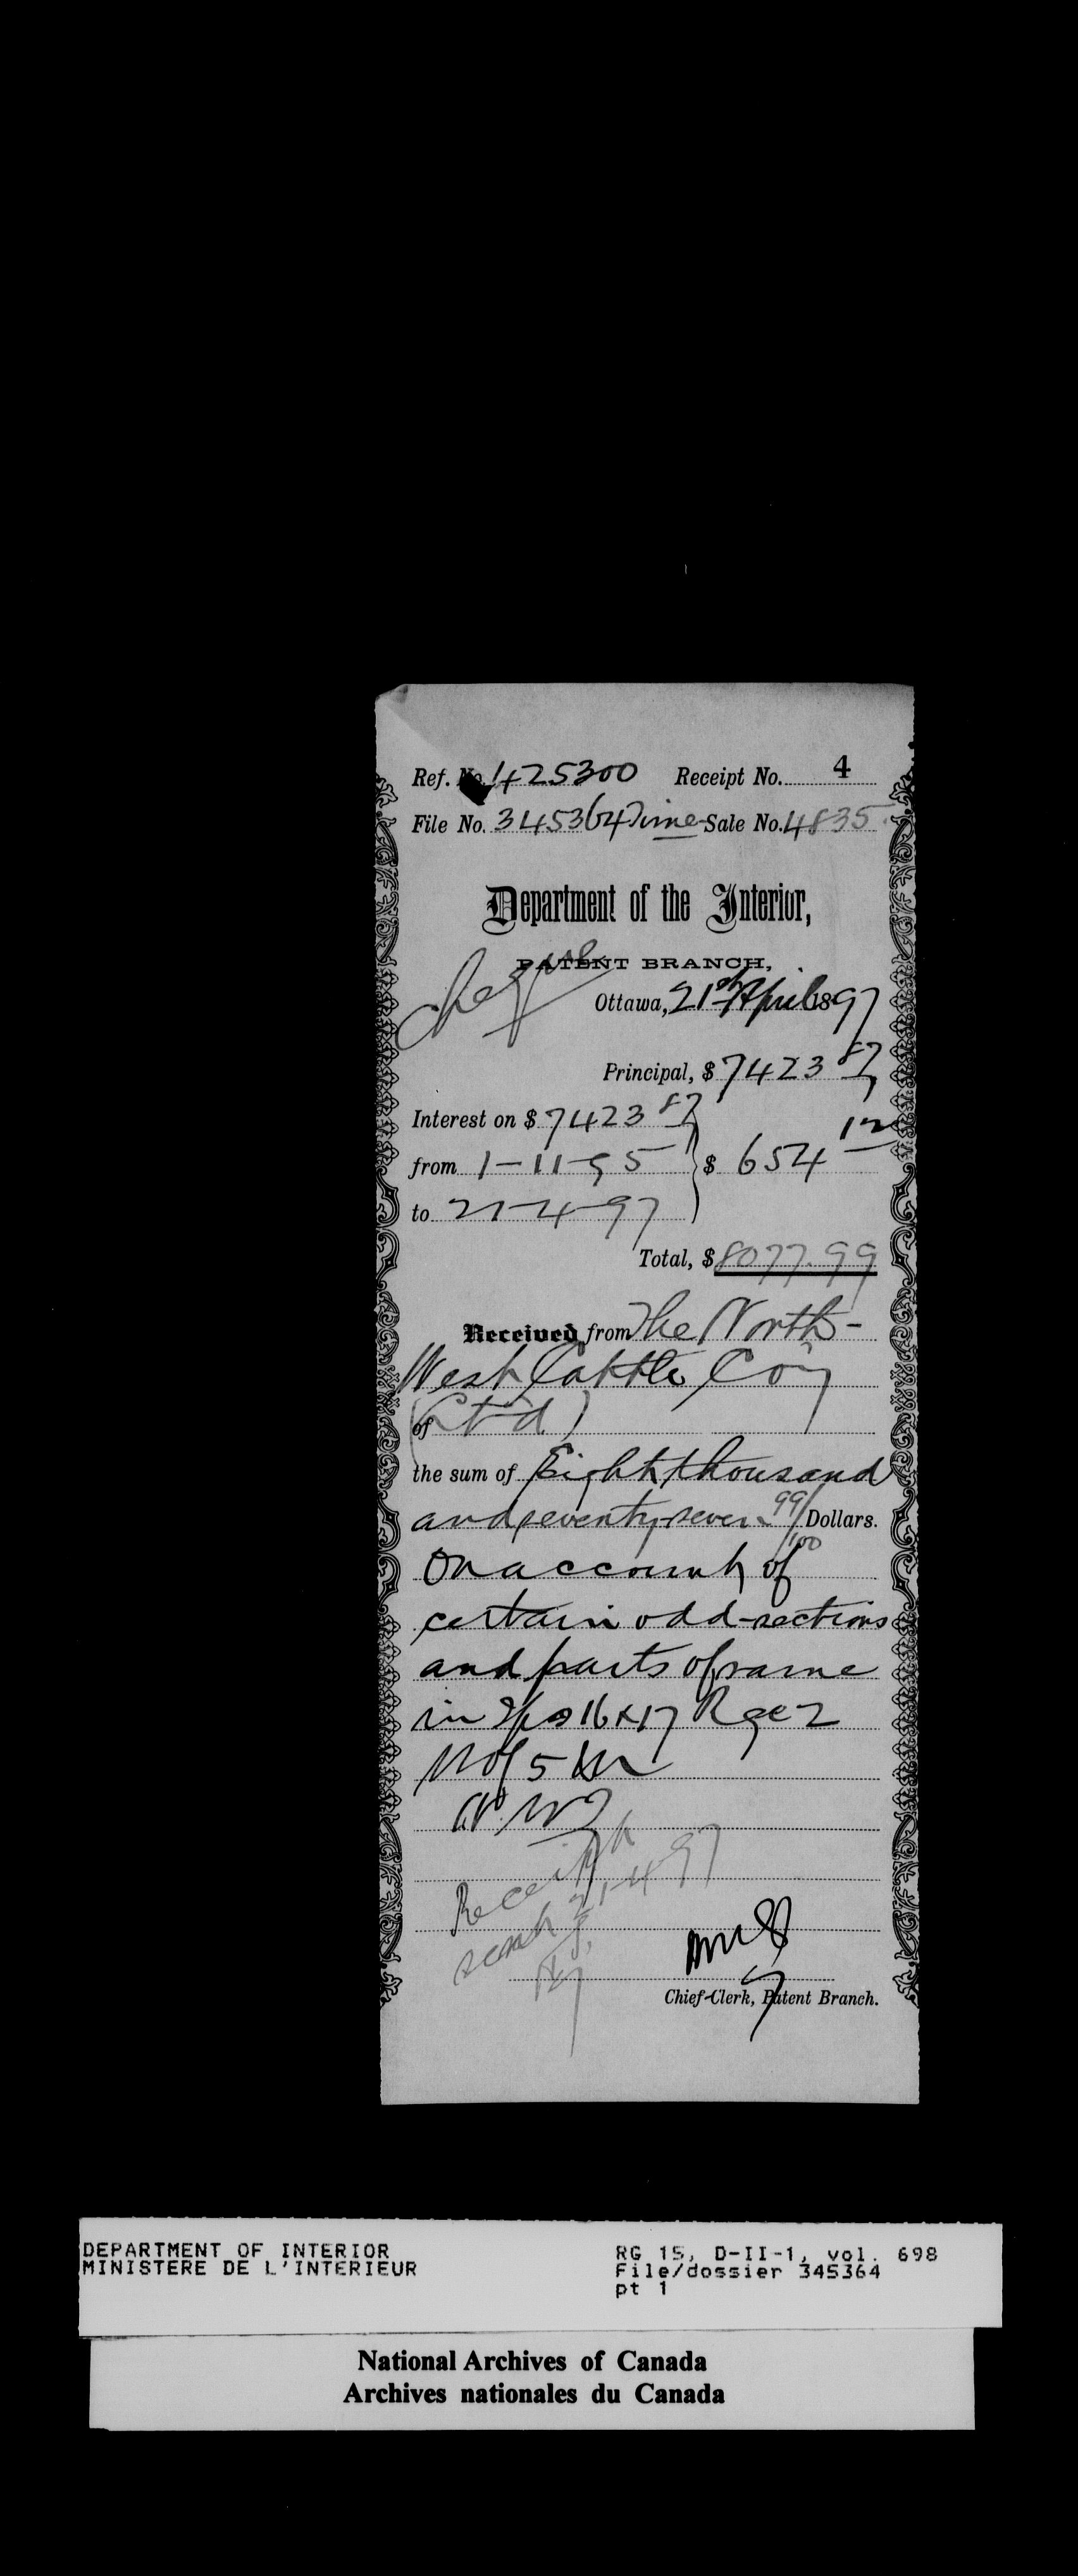 Ref. No. 425300 Receipt No. 4
File No. 345364 Time Sale No. 4835
Department of the Interior,
PATENT BRANCH,
Cheque
Ottawa, 21st April 1897
Principal, $ 7423 87
Interest on $ 7423 87
from 1-11-95 $ 654 12
to 21-4-97
Total, $ 8077.99
Received from The North-
West Cattle Coy
of (Ltd)
the sum of Eight thousand
and seventy-seven 99/100 Dollars.
On account of
certain odd-sections
and parts of same
in Tps 16 & 17 Rge 2
W of 5 M
Receipt
sent 21-4-97
Chief Clerk, Patent Branch.
DEPARTMENT OF INTERIOR
MINISTERE DE L'INTERIEUR
RG 15, D-II-1, vol. 698
File/dossier 345364
pt 1
National Archives of Canada
Archives nationales du Canada